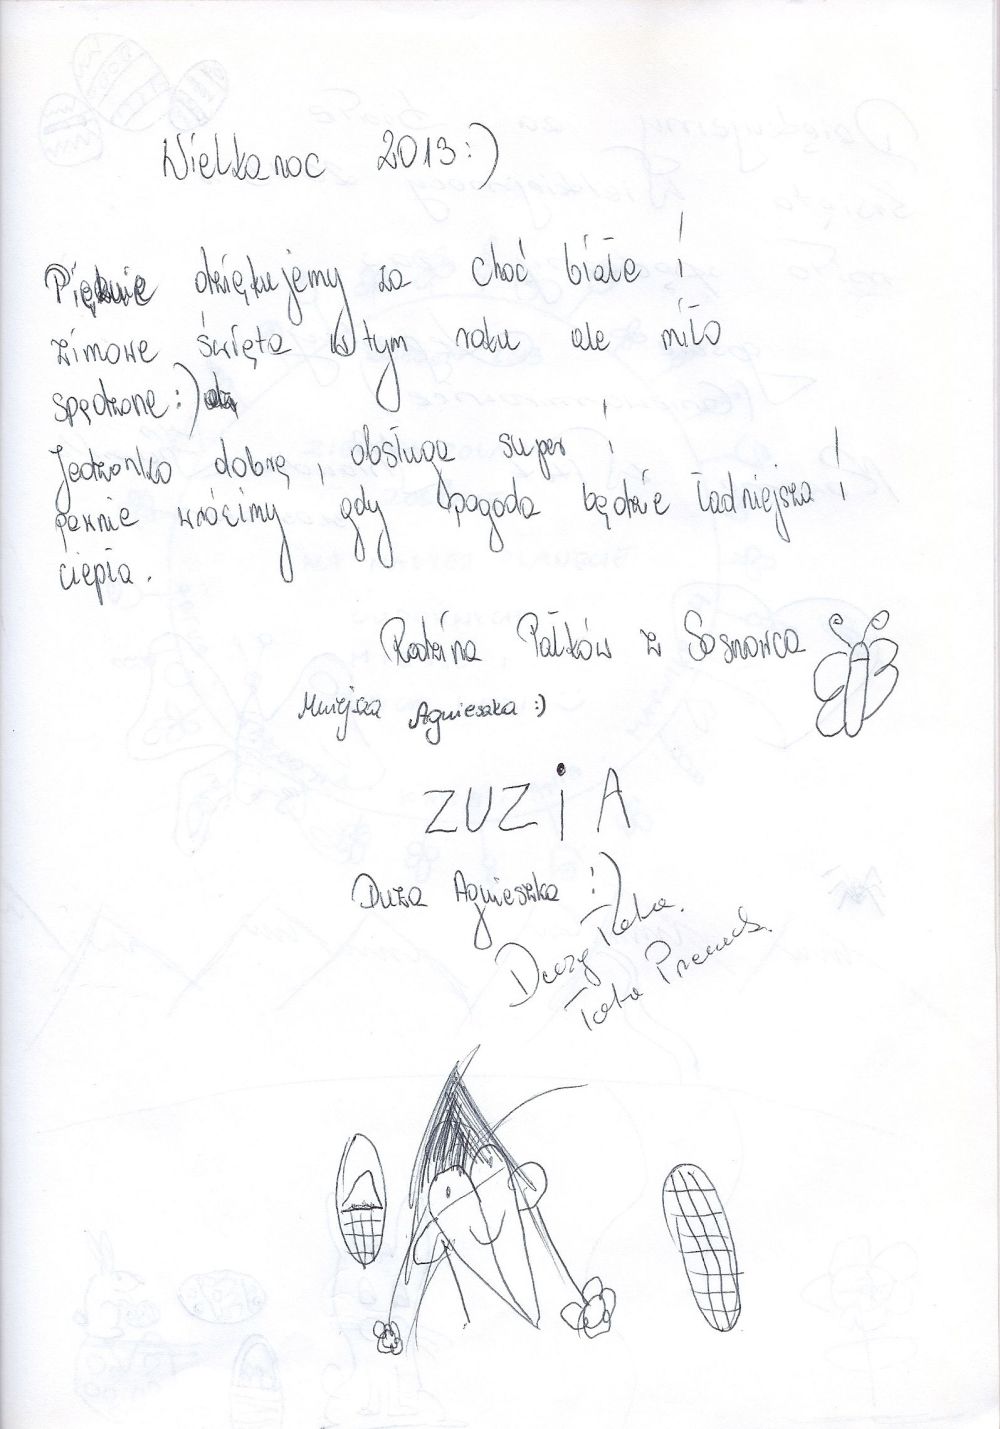 Wielkanoc 2013:)
Pięknie dziękujemy za choć białe i
zimowe święta w tym roku ale miło
spędzone:)
Jedzonko dobrę, obsługa super !
pewnie wrócimy gdy pogoda będzie ładniejsza i
ciepła.
Rodzina Pałków z Sosnowca
Mniejsza Agnieszka :)
ZUZiA
Duża Agnieszka :)
Duży Tata.
Tata